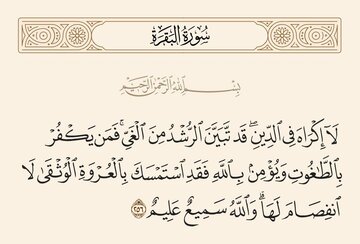 سُورَةُ البَقَرَةِ
بِسْمِ ٱللَّهِ ٱلرَّحْمَٰنِ ٱلرَّحِيمِ
لَآ إِكْرَاهَ فِى ٱلدِّينِ ۖ قَد تَّبَيَّنَ ٱلرُّشْدُ مِنَ ٱلْغَىِّ ۚ فَمَن يَكْفُرْ
بِٱلطَّٰغُوتِ وَيُؤْمِنۢ بِٱللَّهِ فَقَدِ ٱسْتَمْسَكَ بِٱلْعُرْوَةِ ٱلْوُثْقَىٰ لَا
ٱنفِصَامَ لَهَا ۗ وَٱللَّهُ سَمِيعٌ عَلِيمٌ ٢٥٦